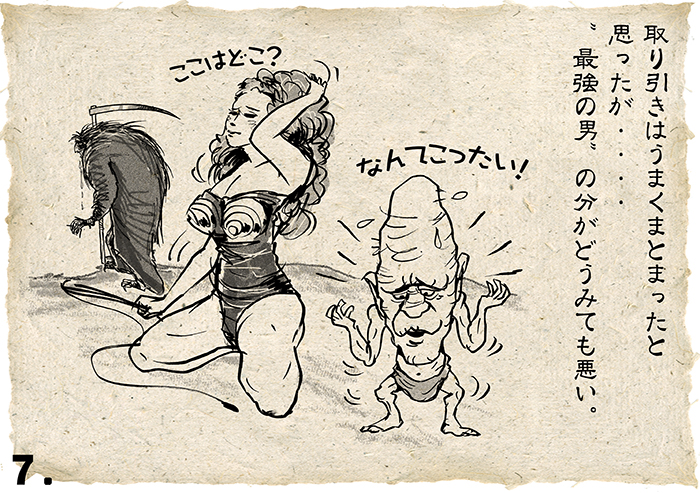 取り引きはうまくまとまったと
思ったが・・・・
〝最強の男〟の分がどうみても悪い。
ここはどこ?
なんてこったい!
7.